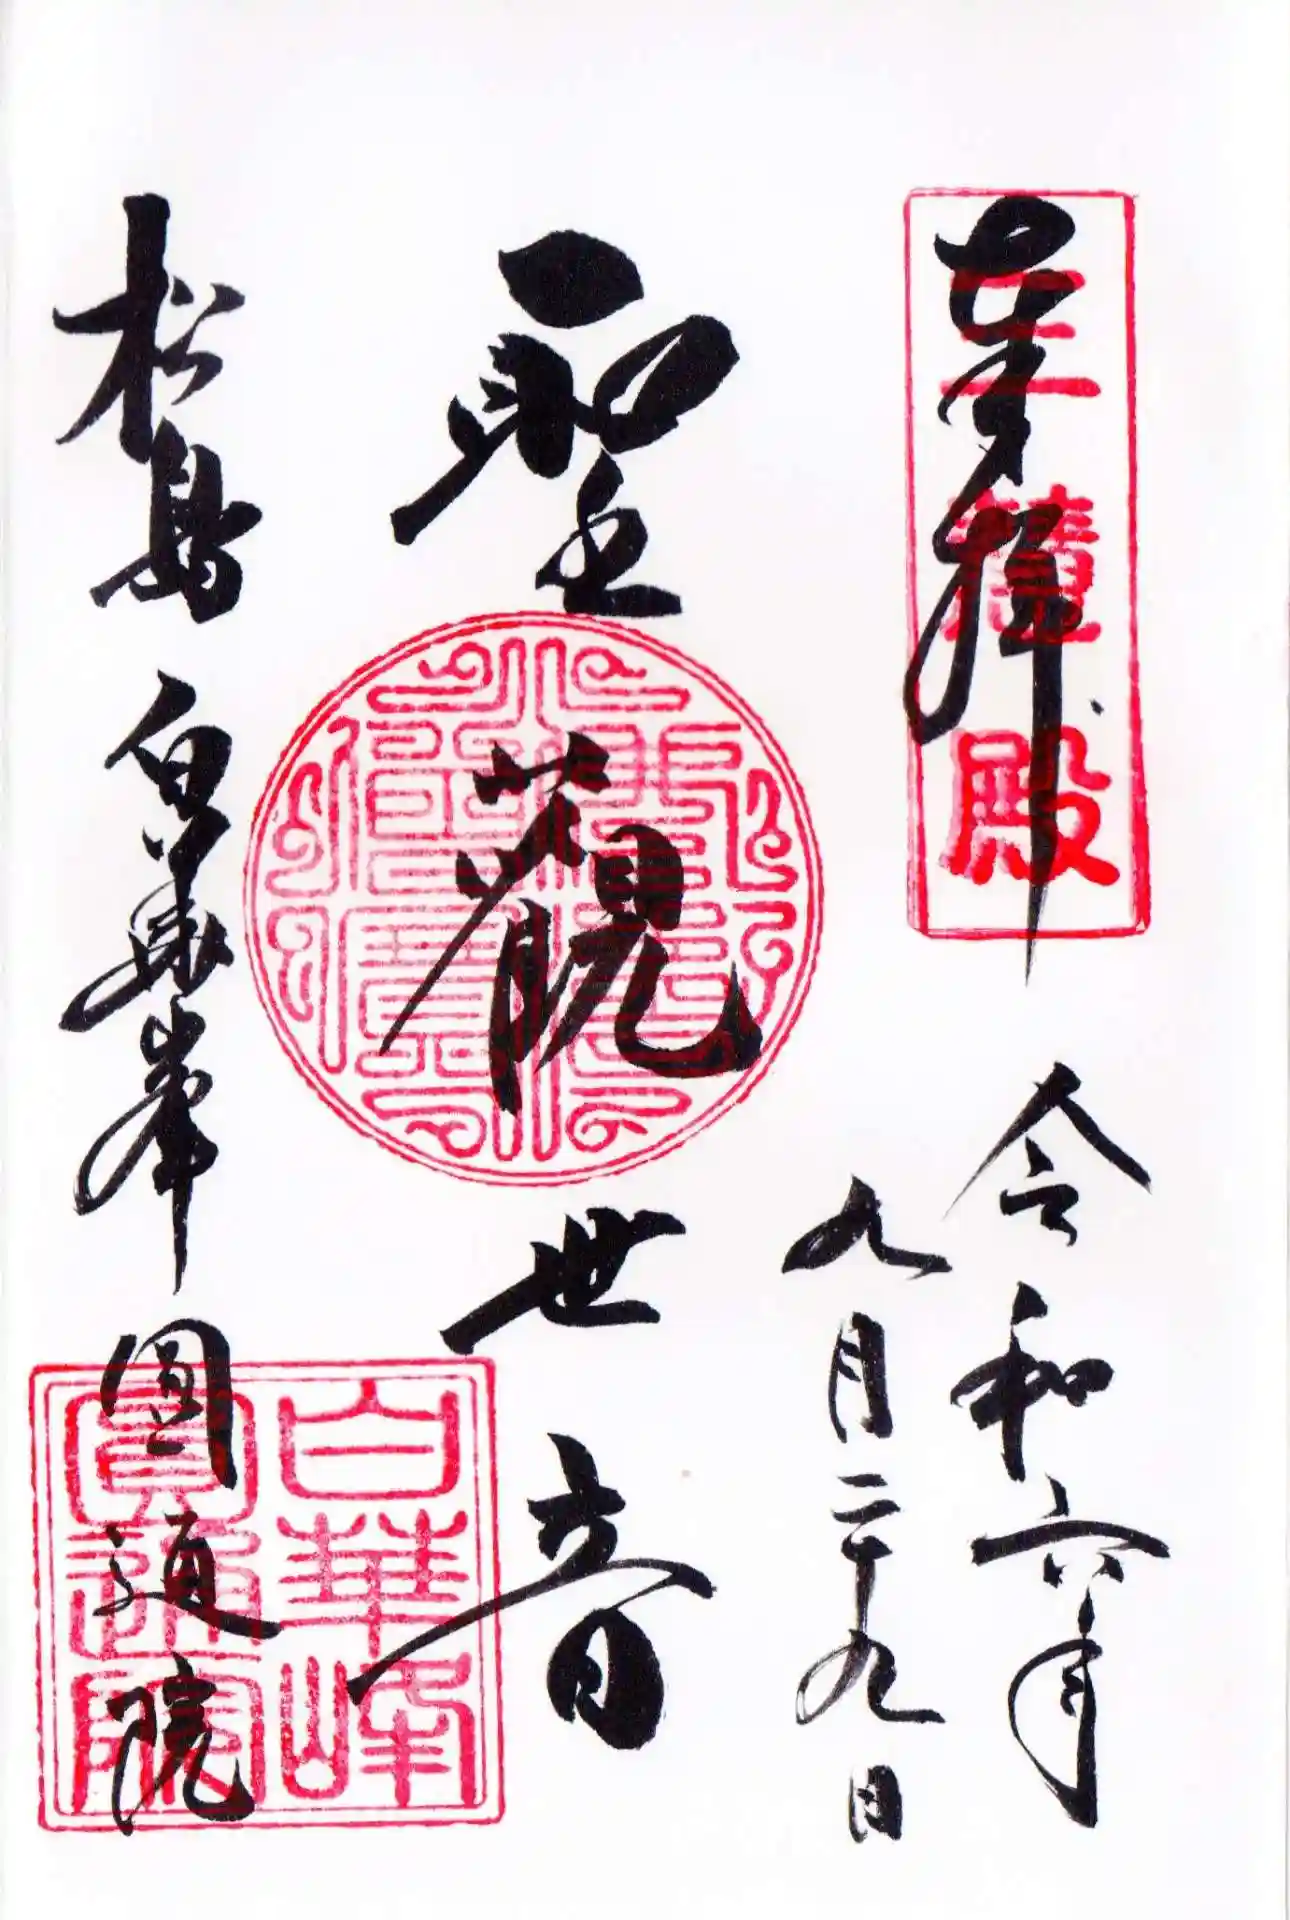 奉拝
三慧殿
令和六年
九月二十九日
聖観世音
松島 白華峯 圓通院
白華峰
圓通院